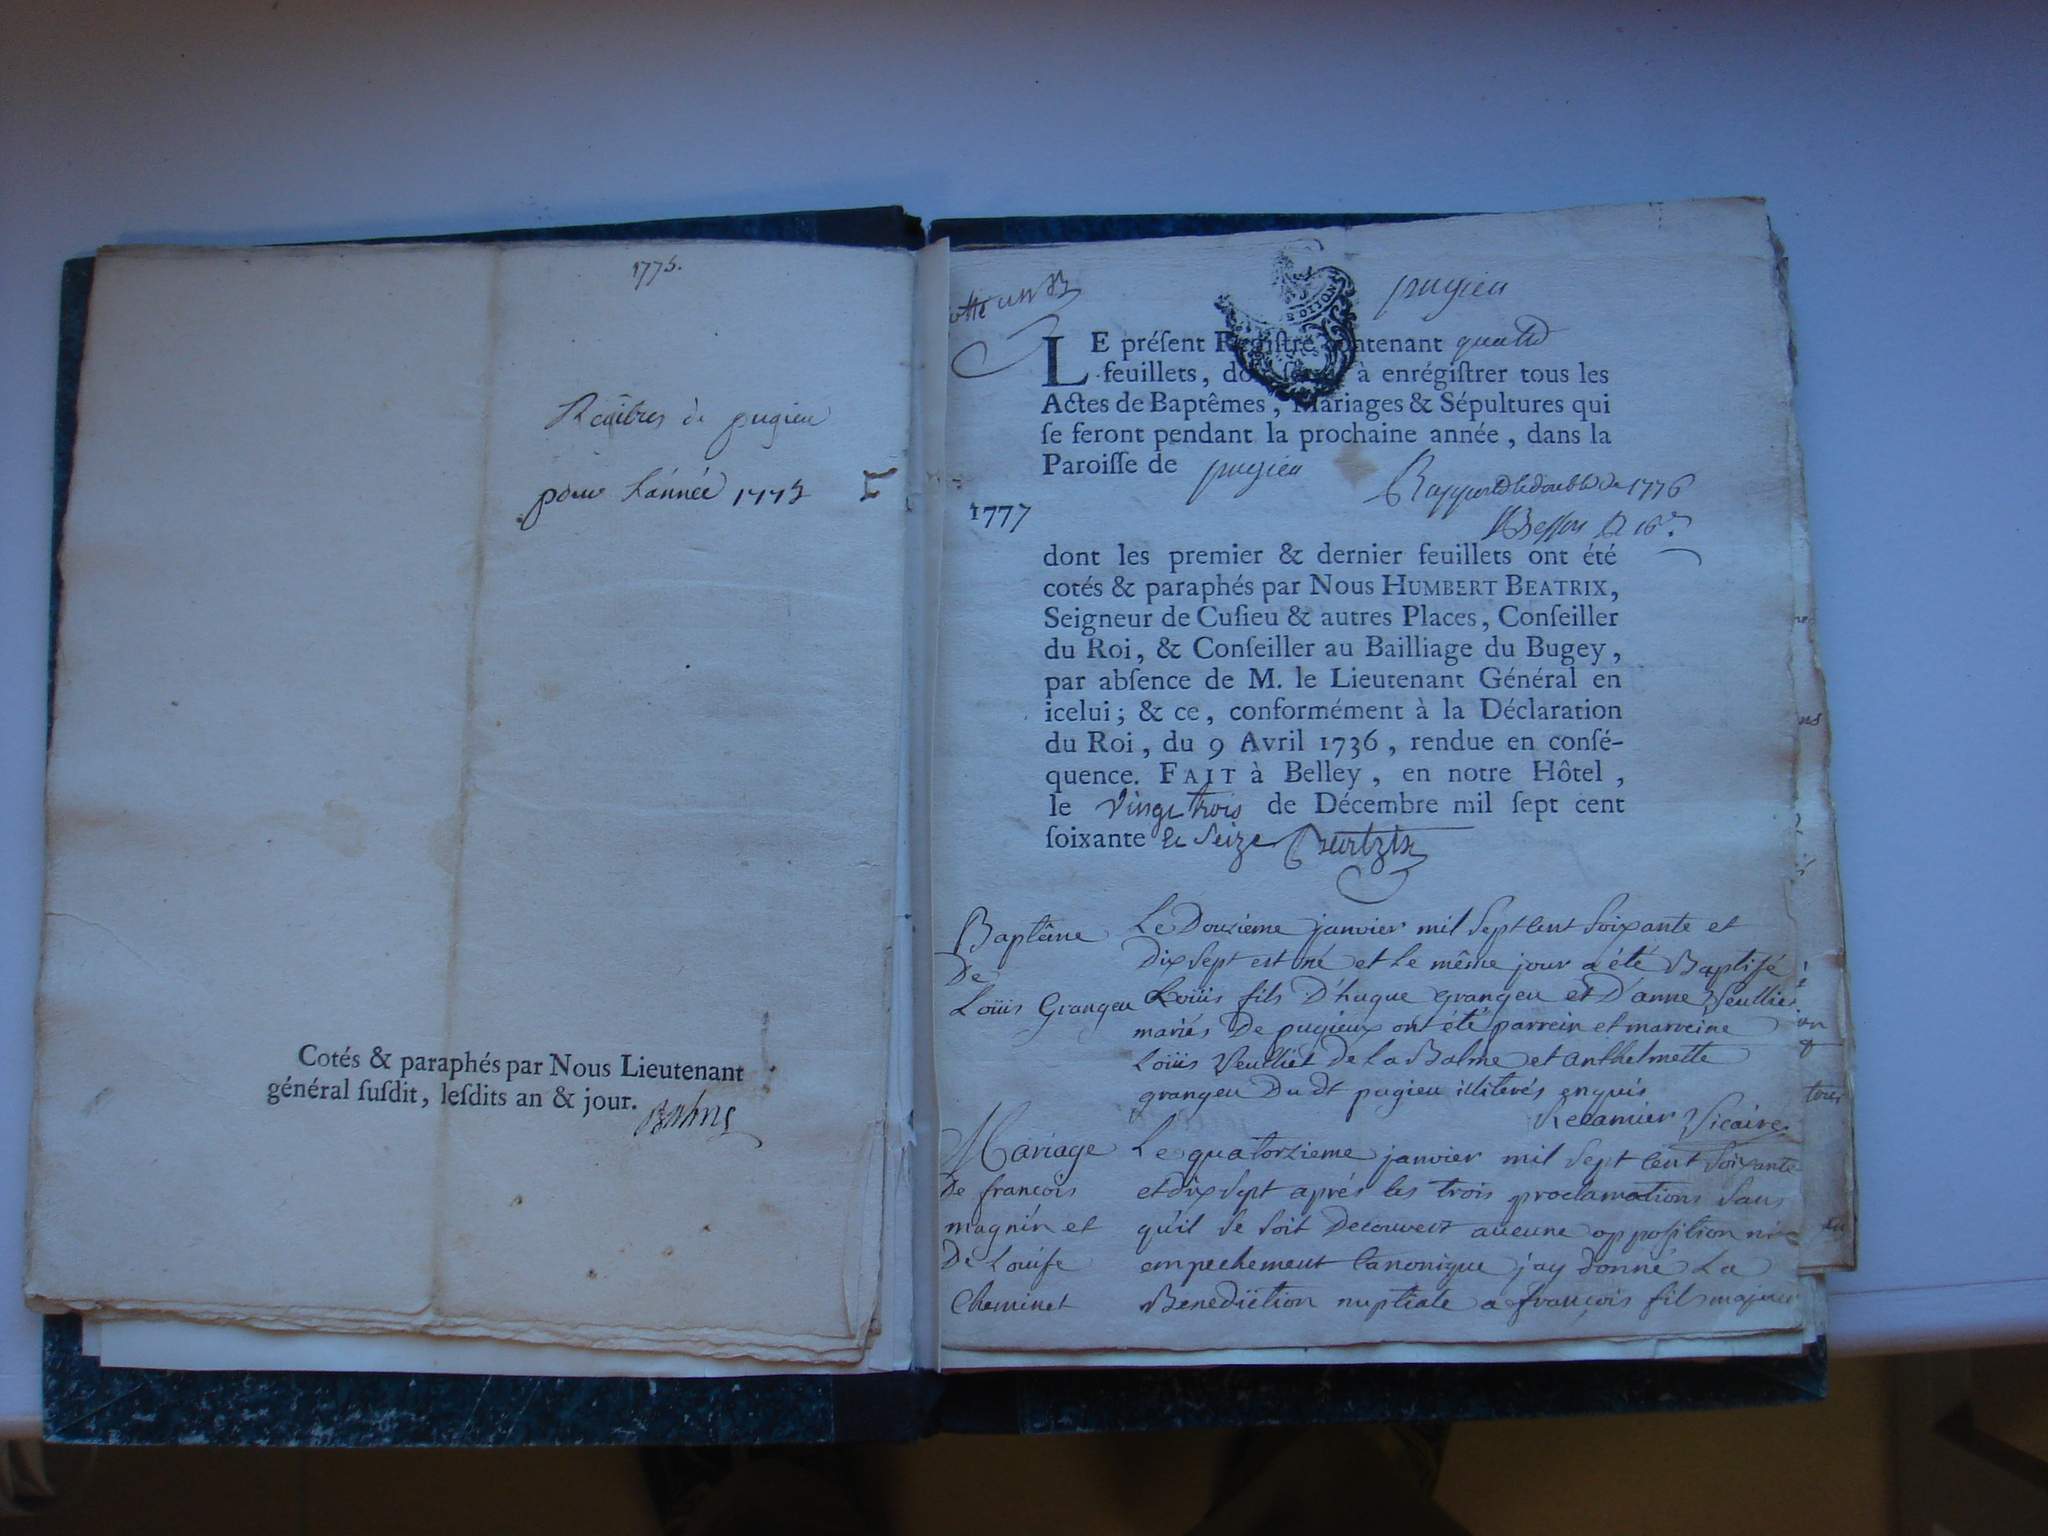 1775.
Reîtres de pugieu
pour L'année 1775
Cotés & paraphés par Nous Lieutenant
général suſdit, leſdits an & jour.
cotte un
pugieu
LE préſent Regiſtre contenant quattre
feuillets, doit ſervir à enrégiſtrer tous les
Actes de Baptêmes, Mariages & Sépultures qui
ſe feront pendant la prochaine année, dans la
Paroiſſe de pugieu
Rapporté le double de 1776
1777
dont les premier & dernier feuillets ont été
cotés & paraphés par Nous HUMBERT BEATRIX,
Seigneur de Cuſieu & autres Places, Conſeiller
du Roi, & Conſeiller au Bailliage du Bugey,
par abſence de M. le Lieutenant Général en
icelui; & ce, conformément à la Déclaration
du Roi, du 9 Avril 1736, rendue en conſé-
quence. FAIT à Belley, en notre Hôtel,
le Vingt trois de Décembre mil ſept cent
ſoixante et Seize
Baptême
De
Loüis Grangeu
Le Douzieme janvier mil Sept Cent Soixante et
Dix Sept est né et Le même jour a été Baptisé
Loüis fils D'hugue grangeu et D'anne Veulliet
mariés De pugieux ont été parrein et marreine
Loüis Veulliet De La Balme et anthelmette
grangeu Du dt pugieu illiterés enquis
Recamier Vicaire
Mariage
De françois
magnin et
De Louise
Cheminet
Le quatorzieme janvier mil Sept Cent Soixante
et dix Sept aprés les trois proclamations Sans
qu'il Se Soit Decouvert aucune opposition ni
empechement Canonique j'ay donné La
Benediction nuptiale a françois fils majeur